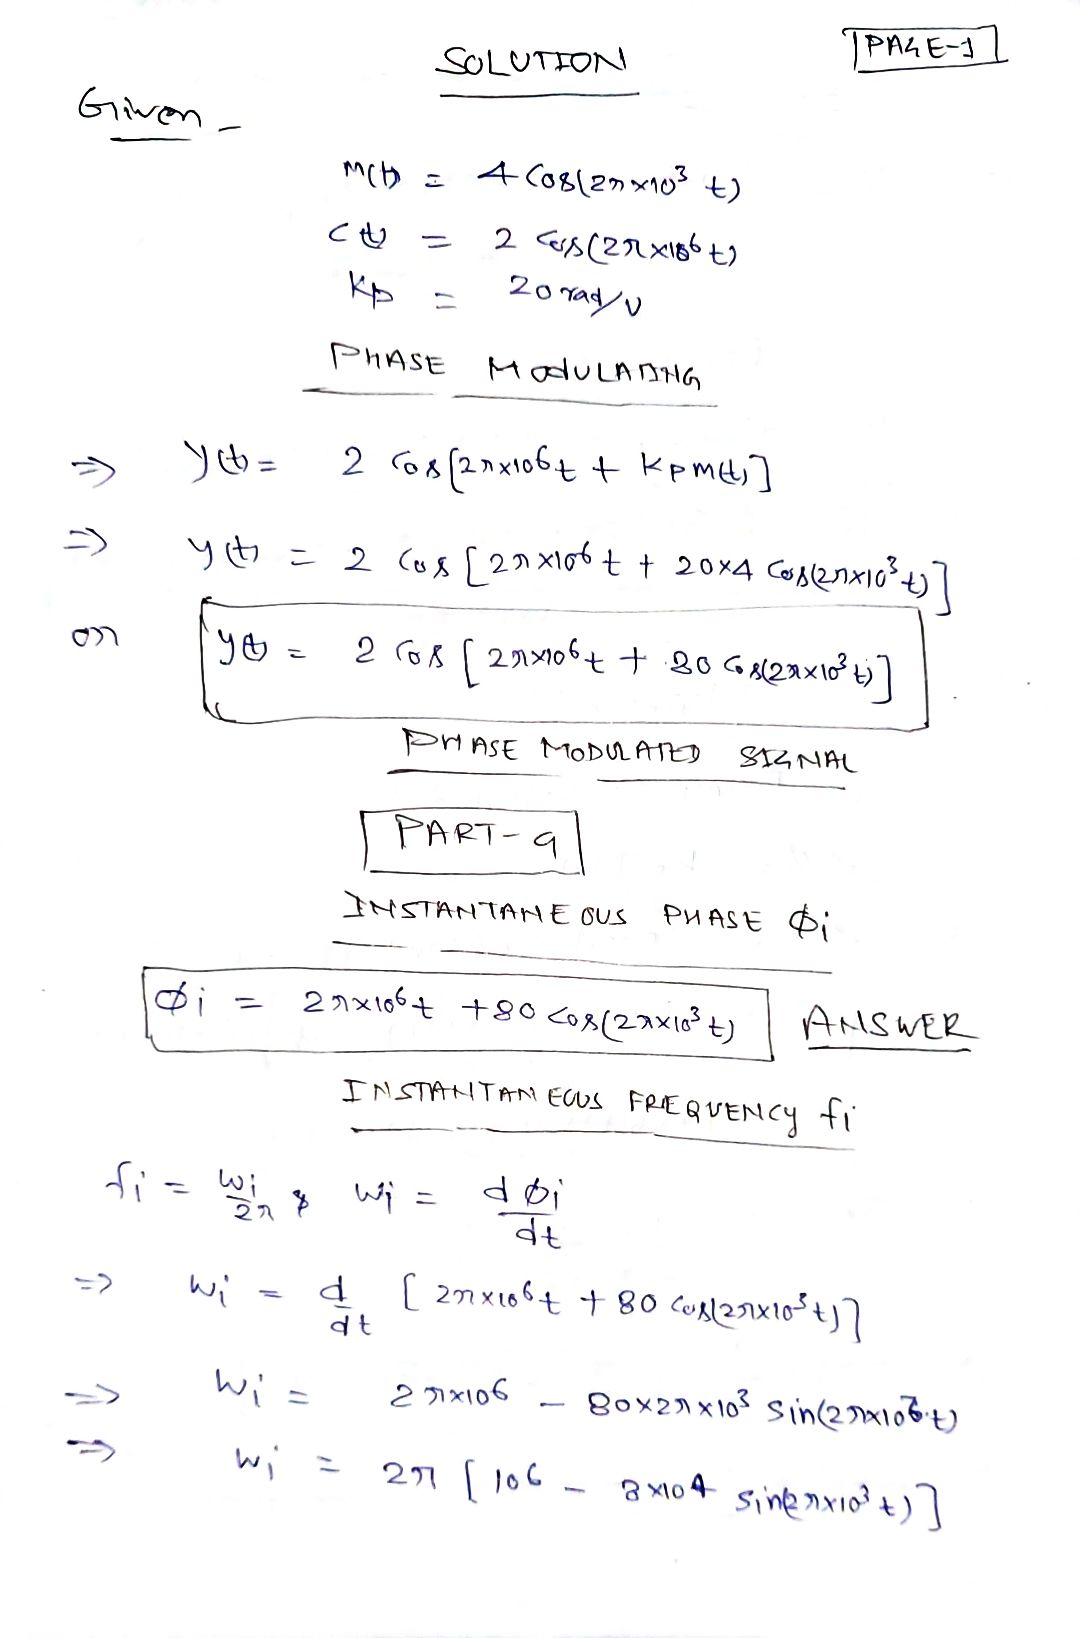 PAGE-1
SOLUTION
Given -
m(t) = 4 Cos(2π×10³ t)
c(t) = 2 Cos(2π×10⁶ t)
Kp = 20 rad/v
PHASE MODULATING
⇒ y(t) = 2 Cos[2π×10⁶t + Kpm(t)]
⇒ y(t) = 2 Cos [2π×10⁶ t + 20×4 Cos(2π×10³ t)]
or y(t) = 2 Cos [2π×10⁶t + 80 Cos(2π×10³ t)]
PHASE MODULATED SIGNAL
PART-a
INSTANTANEOUS PHASE ϕi
ϕi = 2π×10⁶t + 80 cos(2π×10³ t) ANSWER
INSTANTANEOUS FREQUENCY fi
fi = wi/2π & wi = dϕi/dt
⇒ wi = d/dt [2π×10⁶t + 80 Cos(2π×10³ t)]
⇒ wi = 2π×10⁶ - 80×2π×10³ Sin(2π×10³ t)
⇒ wi = 2π [10⁶ - 8×10⁴ sin(2π×10³ t)]